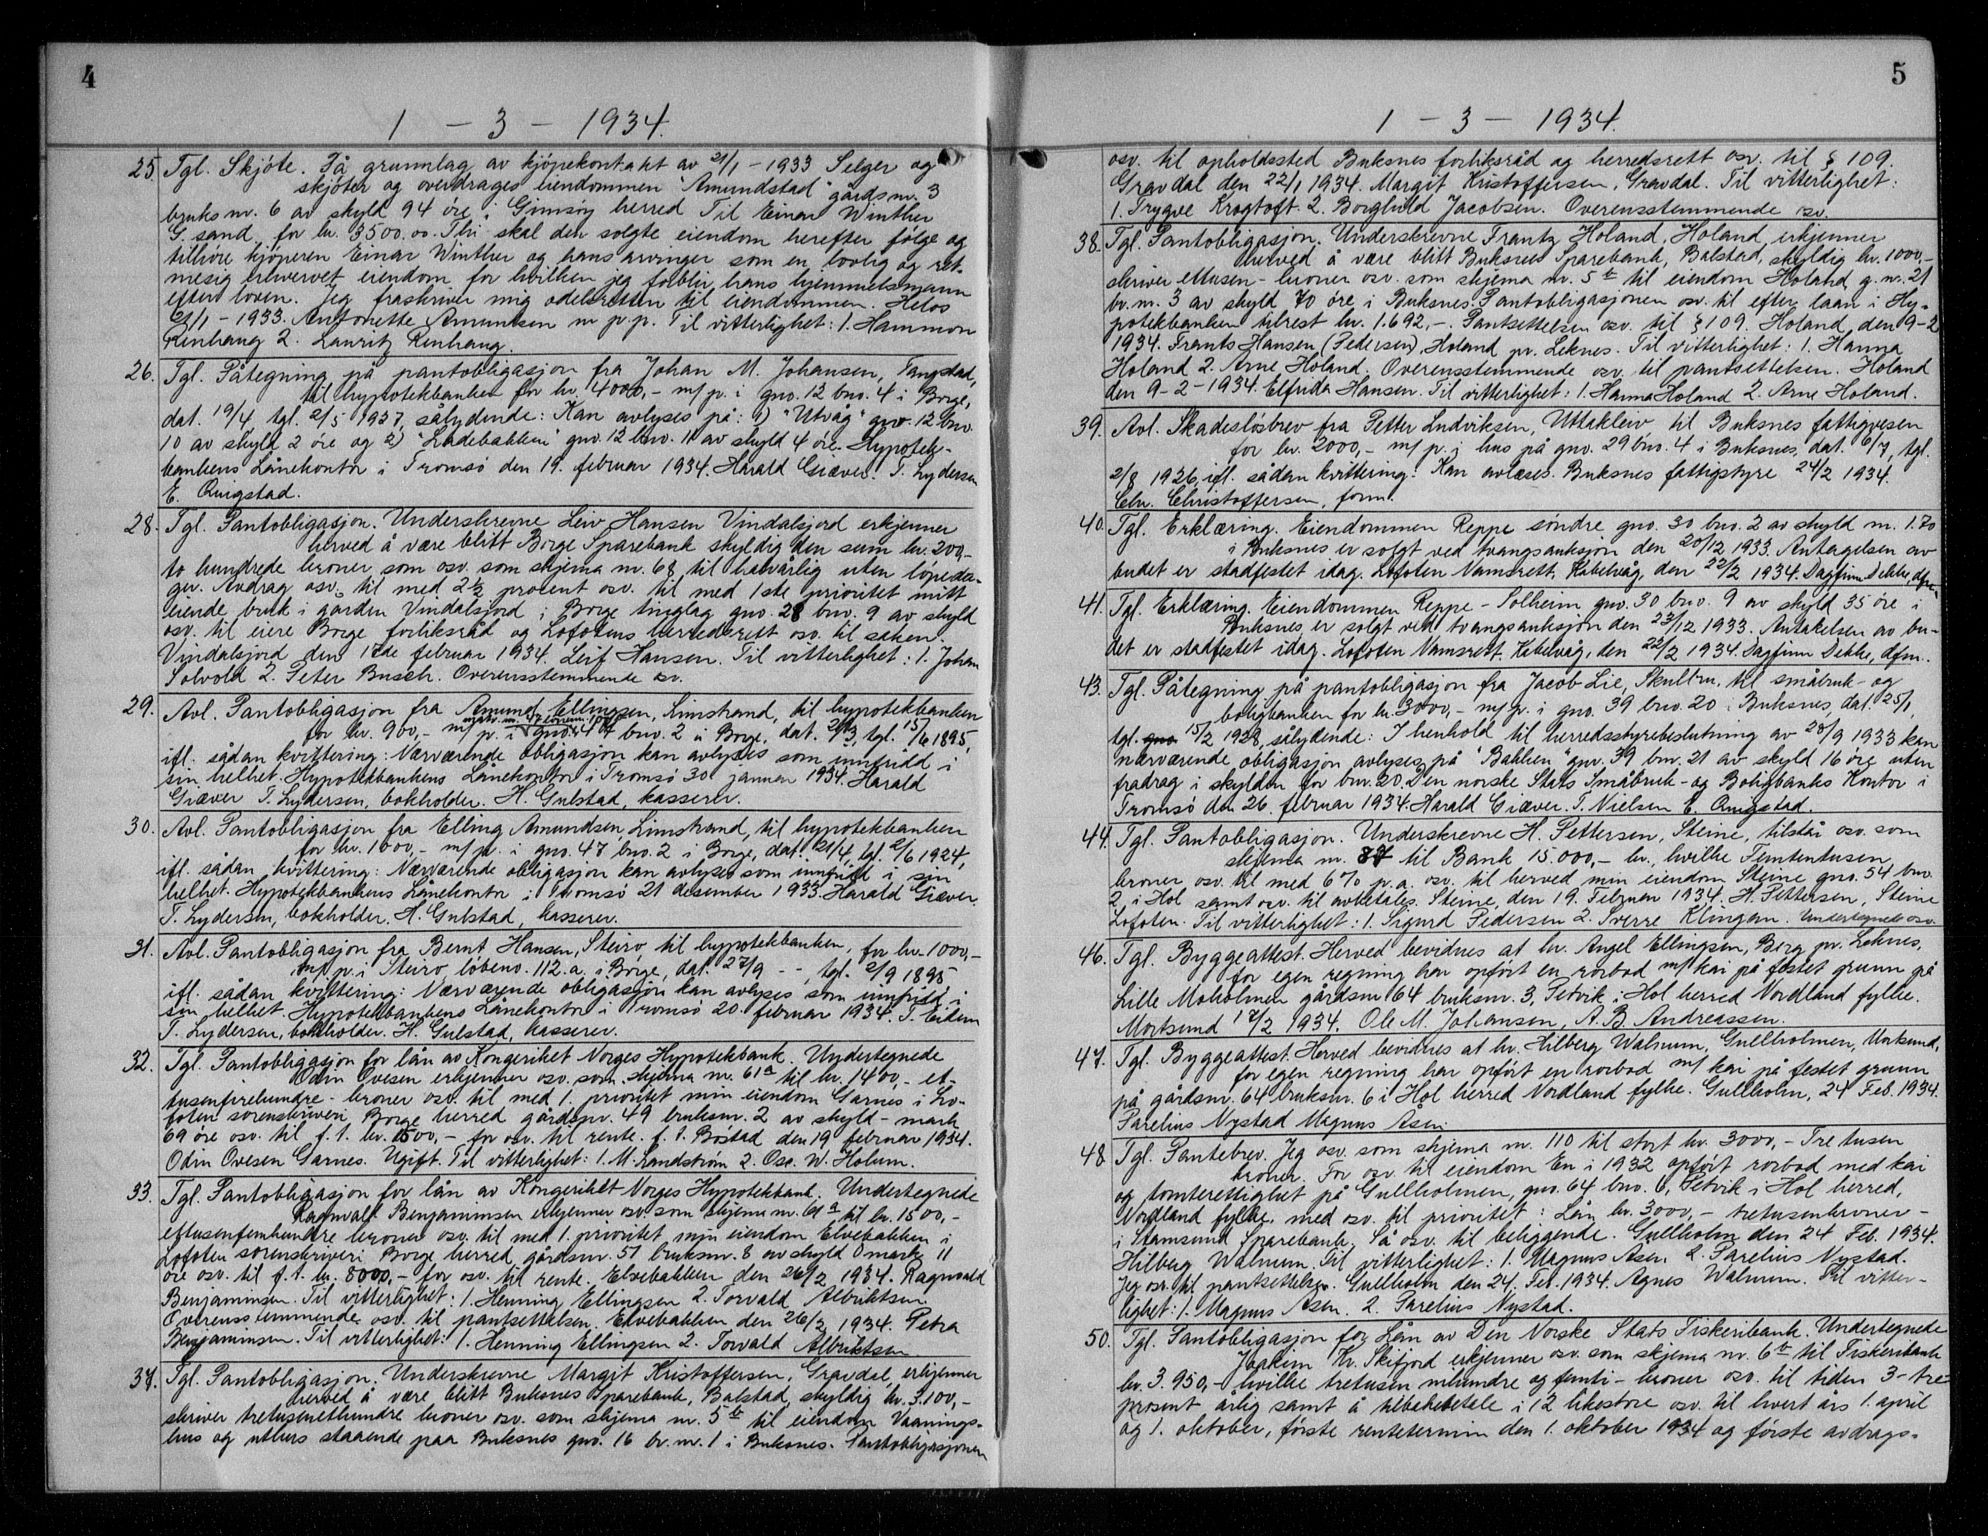 4
1 - 3 - 1934.
25. Tgl. Skjøte. På grunnlag av kjøpekontakt av 21/1 - 1933 Selger og
skjøter og overdrages eiendommen "Amundstad" gårdsnr. 3
bruksnr. 6 av skyld 94 øre i Gimsøy herred Til Einar Winther
G. sand, for kr. 3500.00. Thi skal den solgte eiendom herefter følge og
tilhøre kjøperen Einar Winther og hans arvinger som en lovlig og ret-
mesig erhvervet eiendom for hvilken jeg forblir hans hjemmelsmann
efter loven. Jeg fraskriver mig odelsretten til eiendommen. Helos
21/1 - 1933. Antonette Amundsen m. p. p. Til vitterlighet: 1. Hammon
Rinhaug 2. Lauritz Rinhaug.
26. Tgl. Påtegning på pantobligasjon fra Johan M. Johansen, Tangstad,
til hypotekbanken for kr. 4000,- m/p. i gno. 12 bno. 4 i Borge,
dat. 19/4 tgl. 2/5 1927, sålydende: Kan avlyses på: 1) "Utvåg" gno. 12 bno.
10 av skyld 2 øre og 2) "Ladebakken" gno. 12 bno. 11 av skyld 4 øre. Hypotek-
bankens Lånekontor i Tromsø den 19. februar 1934. Harald Giæver. T. Lydersen
E. Quigstad.
28. Tgl. Pantobligasjon. Underskrevne Leiv Hansen Vindalsjord erkjenner
herved å være blitt Borge Sparebank skyldig den sum kr. 200,-
to hundrede kroner som osv. som skjema nr. 68 til halvårlig uten løpeda-
ger. Avdrag osv. til med 2½ procent osv. til med 1ste prioritet mitt
eiende bruk i gården Vindalsjord i Borge tinglag gno. 28 bno. 9 av skyld
osv. til eiere Borge forliksråd og Lofotens herredsrett osv. til saken.
Vindalsjord den 17de februar 1934. Leif Hansen. Til vitterlighet: 1. Johan
Solvold 2. Peter Busch. Overensstemmende osv.
29. Avl. Pantobligasjon fra Amund Ellingsen, Limstrand, til hypotekbanken
for kr. 900,- m/p. i gno. 47 bno. 2 i Borge, dat. 29/3, tgl. 15/6 1895,
ifl. sådan kvittering: Nærværende obligasjon kan avlyses som innfridd i
sin helhet. Hypotekbankens Lånekontor i Tromsø 30 januar 1934. Harald
Giæver T. Lydersen, bokholder. H. Gulstad, kasserer.
30. Avl. Pantobligasjon fra Elling Amundsen, Limstrand, til hypotekbanken
for kr. 1000,- m/p. i gno. 47 bno. 2 i Borge, dat. 21/4, tgl. 2/6 1924,
ifl. sådan kvittering: Nærværende obligasjon kan avlyses som innfrid i sin
helhet. Hypotekbankens Lånekontor i Tromsø 21 desember 1933. Harald Giæver.
T. Lydersen, bokholder. H. Gulstad, kasserer.
31. Avl. Pantobligasjon fra Bernt Hansen, Steiro, til hypotekbanken, for kr. 1000,-
m/p. i Steiro løbeno. 112. a. i Borge, dat. 27/9 - -, tgl. 2/9 1895
ifl. sådan kvittering: Nærværende obligasjon kan avlyses som innfrid i
sin helhet. Hypotekbankens Lånekontor i Tromsø 20. februar 1934. T. Eidem
T. Lydersen, bokholder. H. Gulstad, kasserer.
32. Tgl. Pantobligasjon for lån av Kongeriket Norges Hypotekbank. Undertegnede
Odin Ovesen erkjenner osv. som skjema nr. 61a til kr. 1400,- et-
tusenfirehundre - kroner osv. til med 1. prioritet min eiendom Garnes i Lo-
foten sorenskriveri Borge herred gårdsnr. 49 bruksnr. 2 av skyld - mark
69 øre osv. til f. t. kr. 1500,- for osv. til rente. f. t. Bøstad den 19 februar 1934.
Odin Ovesen Garnes. Ugift. Til vitterlighet: 1. M. Landstrøm 2. Osc. W. Holum.
33. Tgl. Pantobligasjon for lån av Kongeriket Norges Hypotekbank. Undertegnede
Ragnvald Benjaminsen erkjenner osv. som skjema nr. 61a til kr. 1500,-
ettusenfemhundre kroner osv. til med 1. prioritet min eiendom Elvebakken i
Lofoten sorenskriveri Borge herred, gårdsnr. 51 bruksnr. 8 av skyld 0 mark 11
øre osv. til f. t. kr. 8000,- for osv. til rente. Elvebakken den 26/2 1934. Ragnvald
Benjaminsen. Til vitterlighet: 1. Henning Ellingsen 2. Torvald Albriktsen
Overensstemmende osv. til pantsettelsen. Elvebakken den 26/2 1934. Petra
Benjaminsen. Til vitterlighet: 1. Henning Ellingsen 2. Torvald Albriktsen
37. Tgl. Pantobligasjon. Underskrevne Margit Kristoffersen, Gravdal, erkjenner
herved å være blitt Buksnes Sparebank, Balstad, skyldig kr. 3.100,-
skriver tretusenethundre kroner osv. som skjema nr. 5b til eiendom Vaanings-
hus og uthus staaende paa Buksnes gno. 16 br. nr. 1 i Buksnes. Pantobligasjonen
5
1 - 3 - 1934.
osv. til opholdssted Buksnes forliksråd og herredsrett osv. til § 109.
Gravdal den 22/1 1934. Margit Kristoffersen, Gravdal. Til vitterlighet:
1. Trygve Krogtoft. 2. Borghild Jacobsen. Overensstemmende osv.
38. Tgl. Pantobligasjon. Underskrevne Frantz Holand, Holand, erkjenner
herved å være blitt Buksnes Sparebank, Balstad, skyldig kr. 1000,-
skriver ettusen - kroner osv. som skjema nr. 5b til eiendom Holand g. nr. 21
br. nr. 3 av skyld 70 øre i Buksnes. Pantobligasjonen osv. til efter laan i Hy-
potekbanken tilrest kr. 1.692,-. Pantsettelsen osv. til § 109. Holand, den 9-2
1934. Frants Hansen (Pedersen), Holand pr. Leknes. Til vitterlighet: 1. Hanna
Holand 2. Arne Holand. Overensstemmende osv. til pantsettelsen. Holand
den 9-2-1934. Elfrida Hansen. Til vitterlighet: 1. Hanna Holand 2. Arne Holand.
39. Avl. Skadesløsbrev fra Petter Ludviksen, Uttakleiv til Buksnes fattigvesen
for kr. 2000,- m/p. i hus på gno. 29 bno. 4 i Buksnes, dat. 6/7, tgl.
2/8 1926, ifl. sådan kvittering: Kan avlæses. Buksnes fattigstyre 24/2 1934.
Chr. Christoffersen, form.
40. Tgl. Erklæring. Eiendommen Reppe søndre gno. 30 bno. 2 av skyld m. 1.70
i Buksnes er solgt ved tvangsauksjon den 20/12 1933. Antagelsen av
budet er stadfestet idag. Lofoten Namsrett, Kabelvåg, den 22/2 1934. Dagfinn Dekke, dfm.
41. Tgl. Erklæring. Eiendommen Reppe - Solheim gno. 30 bno. 9 av skyld 35 øre i
Buksnes er solgt ved tvangsauksjon den 23/12 1933. Antakelsen av bu-
det er stadfestet idag. Lofoten Namsrett. Kabelvåg, den 22/2 1934. Dagfinn Dekke, dfm.
43. Tgl. Påtegning på pantobligasjon fra Jacob Lie, Skulbru, til småbruk- og
boligbanken for kr. 3000,- m/p. i gno. 39 bno. 20 i Buksnes, dat. 25/1,
tgl. 15/2 1928, sålydende: I henhold til herredsstyrebeslutning av 28/9 1933 kan
nærværende obligasjon avlyses på "Bakken" gnr. 39 bnr. 21 av skyld 16 øre uten
fradrag i skylden for bnr. 20. Den norske Stats Småbruk- og Boligbanks Kontor i
Tromsø den 26. februar 1934. Harald Giæver. T. Nielsen E. Quigstad.
44. Tgl. Pantobligasjon. Underskrevne H. Pettersen, Steine, tilstår osv. som
skjema nr. 87 til Bank 15.000,- kr., hvilke Femtentusen
kroner osv. til med 6% p. a. osv. til herved min eiendom Steine gno. 54 bno.
2 i Hol samt osv. til avbetales. Steine, den 19. Februar 1934. H. Pettersen, Steine
Lofoten. Til vitterlighet: 1. Sigurd Pedersen 2. Sverre Klingan. Undertegnede osv.
46. Tgl. Byggeattest. Herved bevidnes at hr. Angel Ellingsen, Berg pr. Leknes,
for egen regning har opført en rorbod m/ kai på festet grunn på
Lille Moholmen gårdsnr 64 bruksnr. 3, Petvik i Hol herred Nordland fylke.
Mortsund 17/2 1934. Ole M. Johansen, A. B. Andreassen.
47. Tgl. Byggeattest. Herved bevidnes at hr. Hilberg Walnum, Gullholmen, Mortsund,
for egen regning har opført en rorbod m/ kai på festet grunn
på gårdsnr. 64 bruksnr. 6 i Hol herred Nordland fylke. Gullholm, 24 Feb. 1934.
Parelius Nystad Magnus Åsen
48. Tgl. Pantebrev. Jeg osv. som skjema nr. 110 til stort kr. 3000,- Tre tusen
kroner. For osv. til eiendom En i 1932 opført rorbod med kai
og tomterettighet på Gullholmen, gno. 64 bno. 6, Petvik i Hol herred,
Nordland fylke, med osv. til prioritet: Lån kr. 3000,- tretusenkroner -
i Stamsund Sparebank. Så osv. til beliggende. Gullholm den 24 Feb. 1934.
Hilberg Walnum. Til vitterlighet: 1. Magnus Åsen 2. Parelius Nystad.
Jeg osv. til pantsettelse. Gullholm den 24. Feb. 1934. Agnes Walnum. Til vitter-
lighet: 1. Magnus Åsen. 2. Parelius Nystad.
50. Tgl. Pantobligasjon for Lån av Den Norske Stats Fiskeribank. Undertegnede
Joakim Kr. Skifjord erkjenner osv. som skjema nr. 6b til Fiskeribank
kr. 3.950,- hvilke tretusen nihundre og femti - kroner osv. til tiden 3 - tre
prosent årlig samt å tilbakebetale i 12 likestore osv. til hvert års 1. april
og 1. oktober, første rentetermin den 1. oktober 1934 og første avdrags-